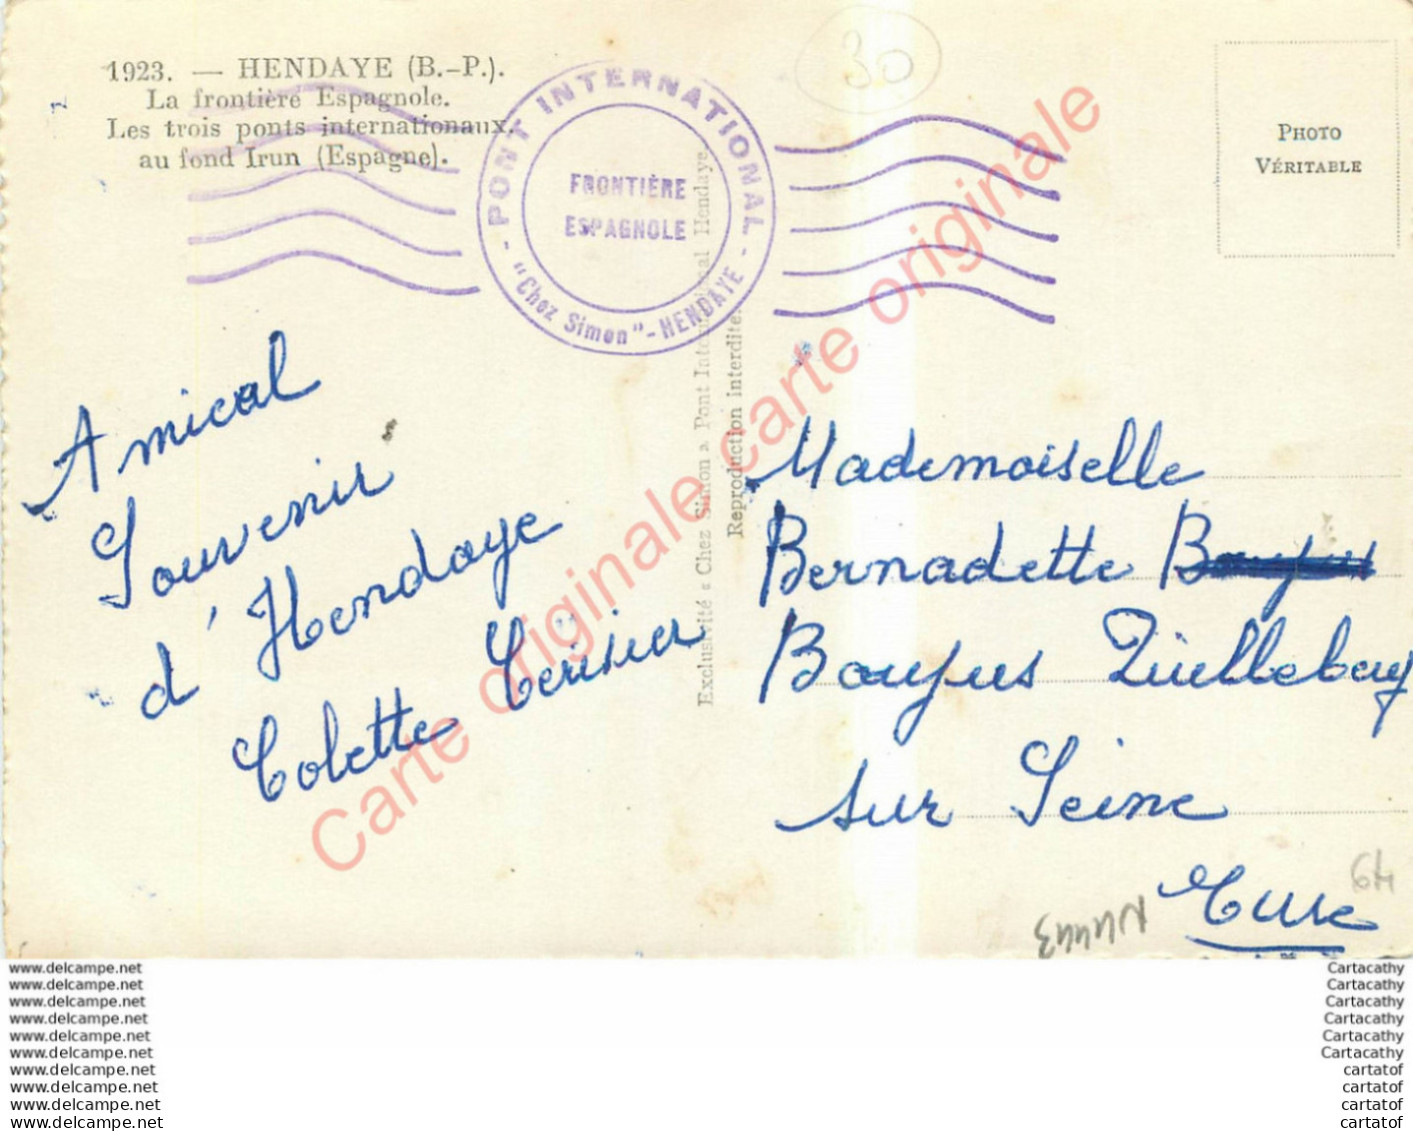 1923. — HENDAYE (B.-P.).
La frontière Espagnole.
Les trois ponts internationaux.
au fond Irun (Espagne).
- PONT INTERNATIONAL -
FRONTIÈRE
ESPAGNOLE
"Chez Simon" - HENDAYE
30
PHOTO
VÉRITABLE
Exclusivité « Chez Simon » Pont International Hendaye.
Reproduction interdite.
Amical
Souvenir
d'Hendaye
Colette Cerisier
Mademoiselle
Bernadette
Boufus Quillebeuf
sur Seine
Eure
Carte originale carte originale
www.delcampe.net
www.delcampe.net
www.delcampe.net
www.delcampe.net
www.delcampe.net
www.delcampe.net
www.delcampe.net
www.delcampe.net
www.delcampe.net
www.delcampe.net
Cartacathy
Cartacathy
Cartacathy
Cartacathy
Cartacathy
Cartacathy
cartatof
cartatof
cartatof
cartatof